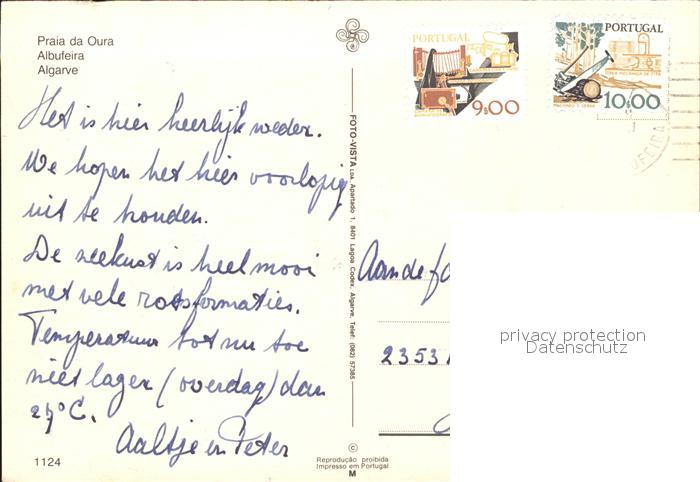 Praia da Oura
Albufeira
Algarve
PORTUGAL
9$00
PORTUGAL
10$00
UFEIRA
Het is hier heerlijk weder.
We hopen het hier voorlopig
uit te houden.
De zeekust is heel mooi
met vele rotsformaties.
Temperatuur tot nu toe
niet lager (overdag) dan
27°C.
Aaltje en Peter
FOTO-VISTA LDA. Apartado 1, 8401 Lagoa Codex, Algarve, Telef: (082) 57385
Aan de fa
2353
privacy protection
Datenschutz
1124
©
Reprodução proibida
Impresso em Portugal
M